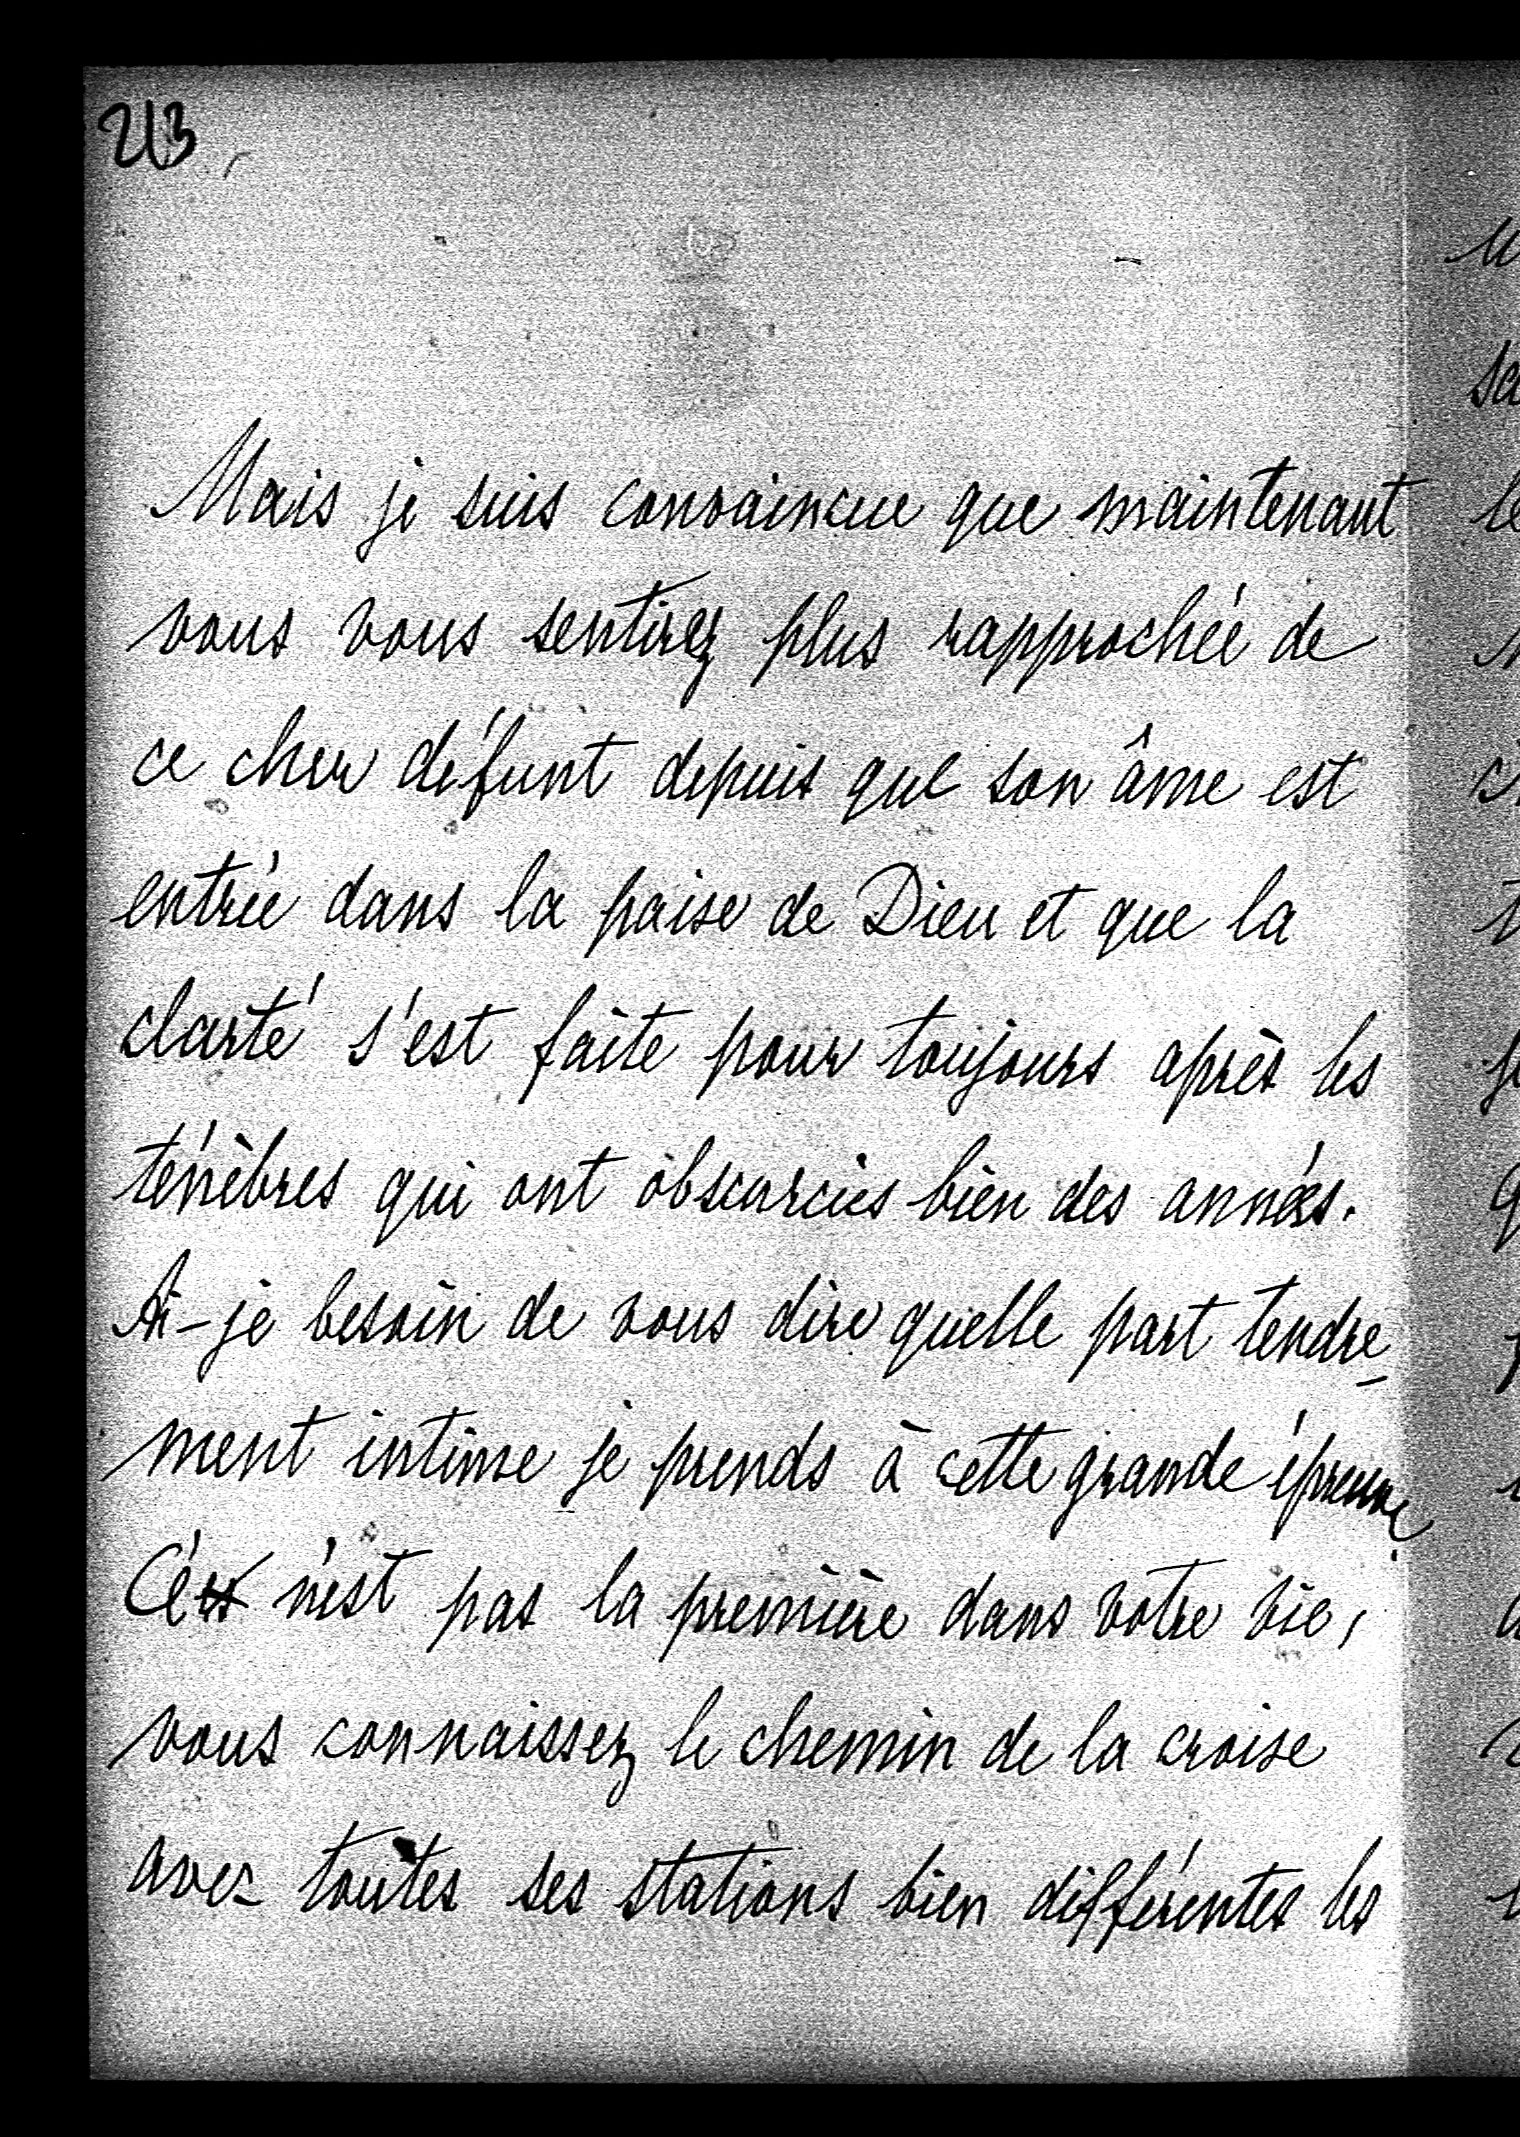 213
Mais je suis convaincue que maintenant
vous vous sentirez plus rapprochée de
ce cher défunt depuis que son âme est
entrée dans la paise de Dieu et que la
clarté s'est faite pour toujours après les
ténèbres qui ont obscurcies bien des années.
Ai-je besoin de vous dire quelle part tendre-
ment intime je prends à cette grande épreuve.
Ce n'est pas la première dans votre vie,
vous connaissez le chemin de la croise
avec toutes ses stations bien différentes les